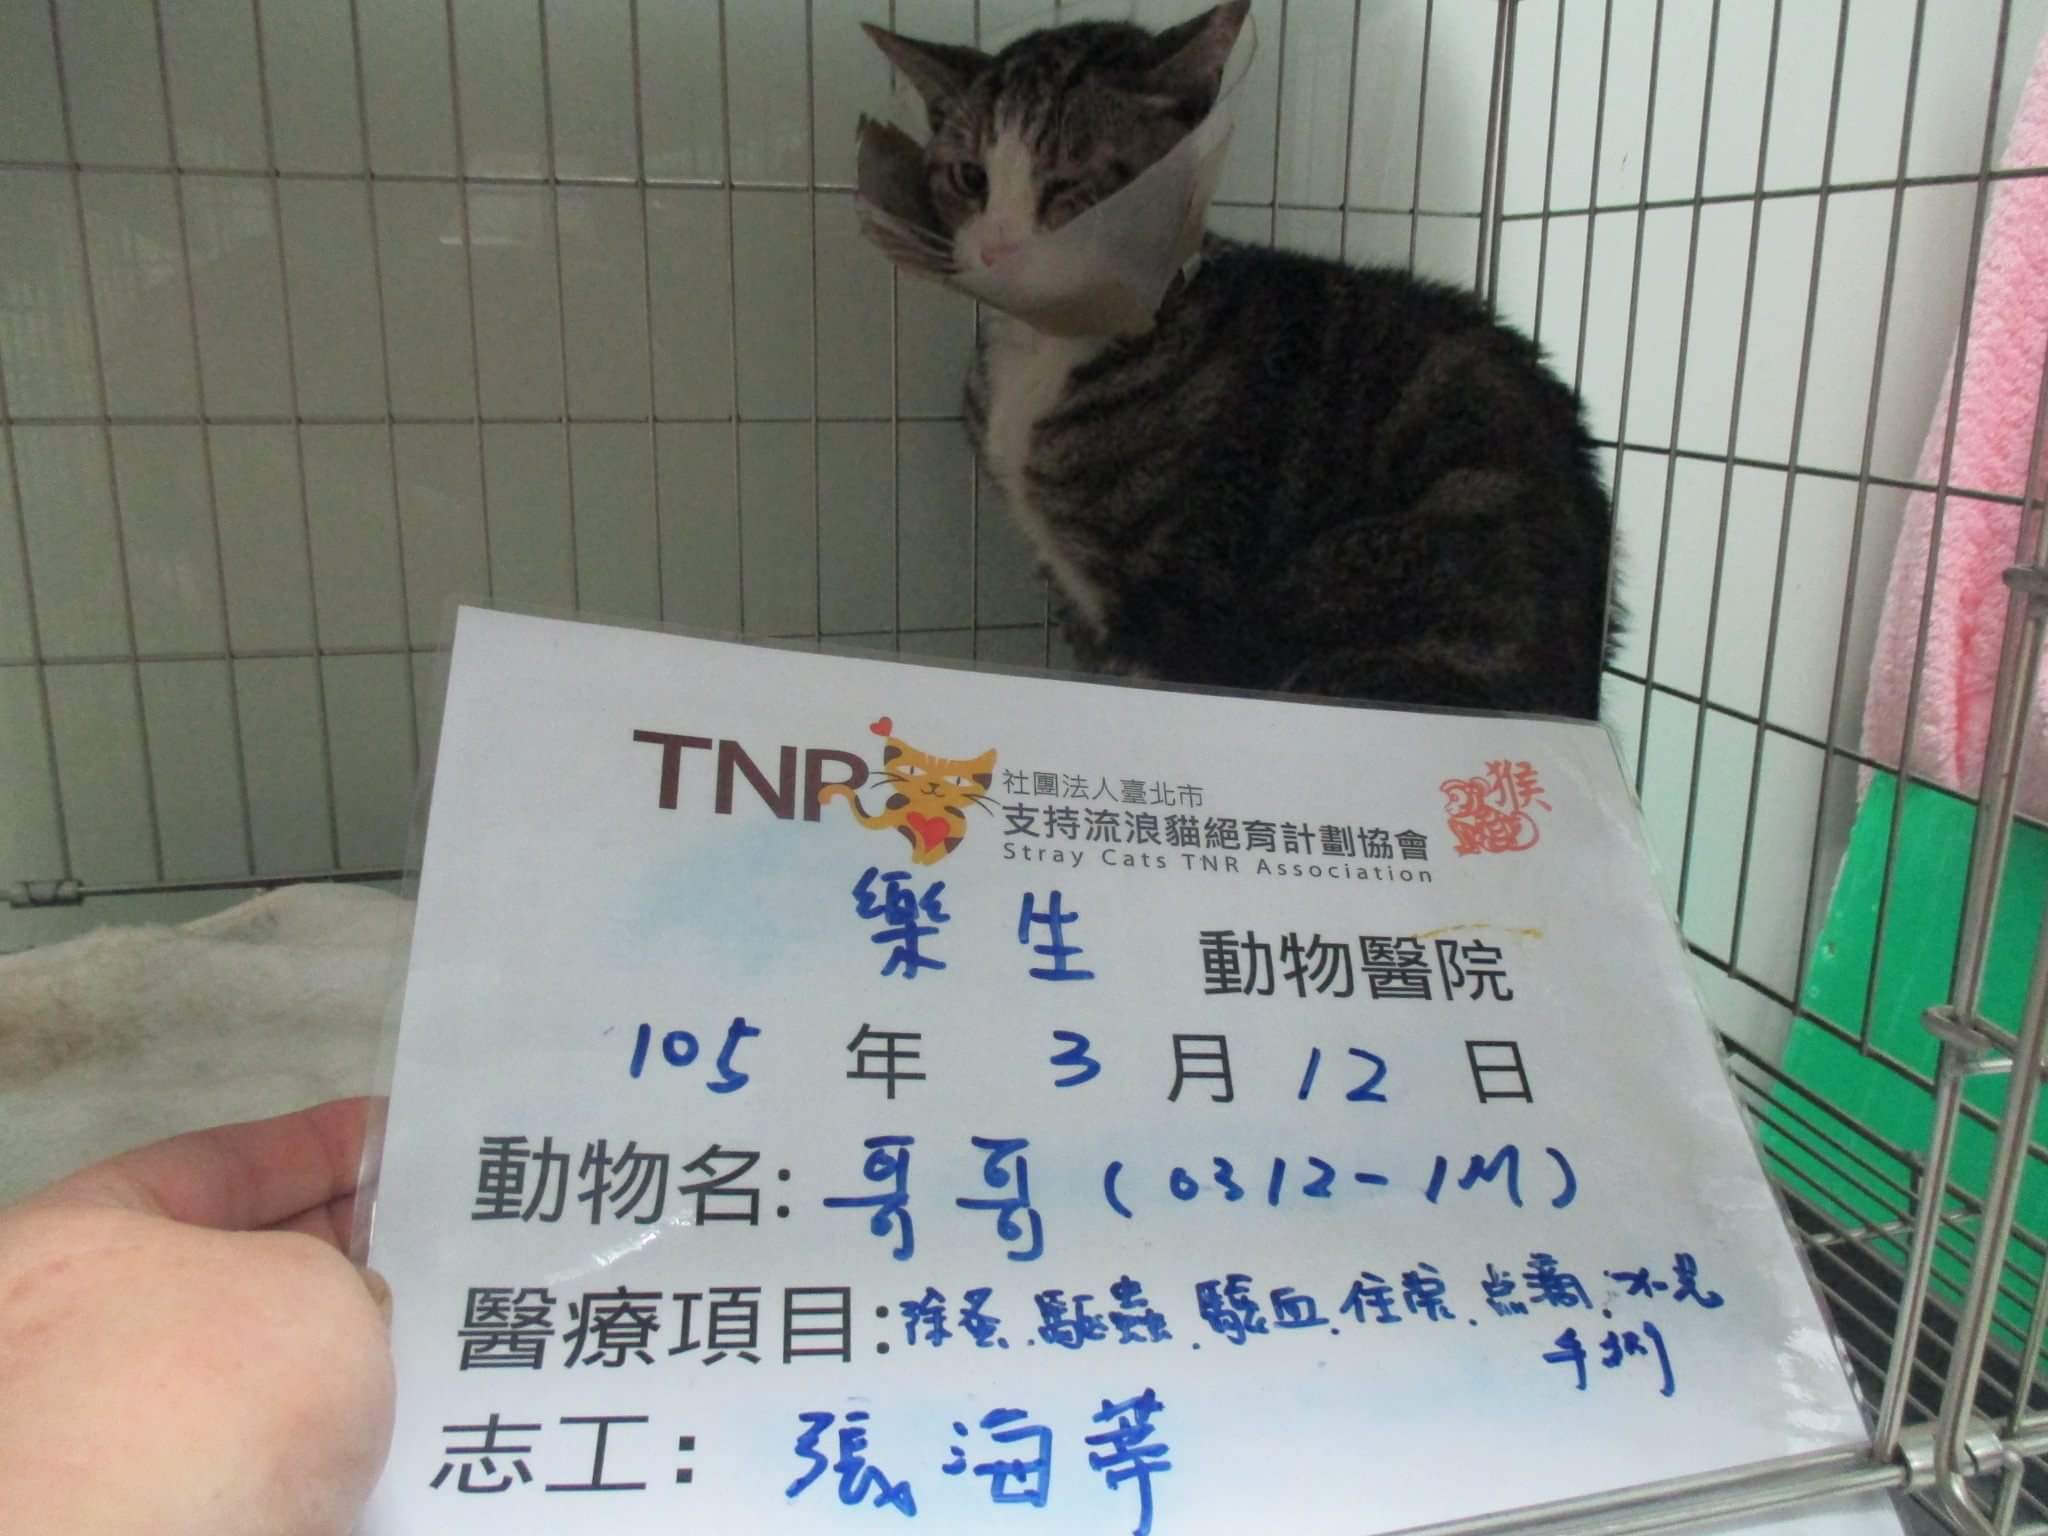 TNR
社團法人臺北市
支持流浪貓絕育計劃協會
Stray Cats TNR Association
猴
樂生 動物醫院
105 年 3 月 12 日
動物名: 哥哥 (0312-1M)
醫療項目: 除蚤、驅蟲、驗血、住院、点滴、
手術
志工: 張海